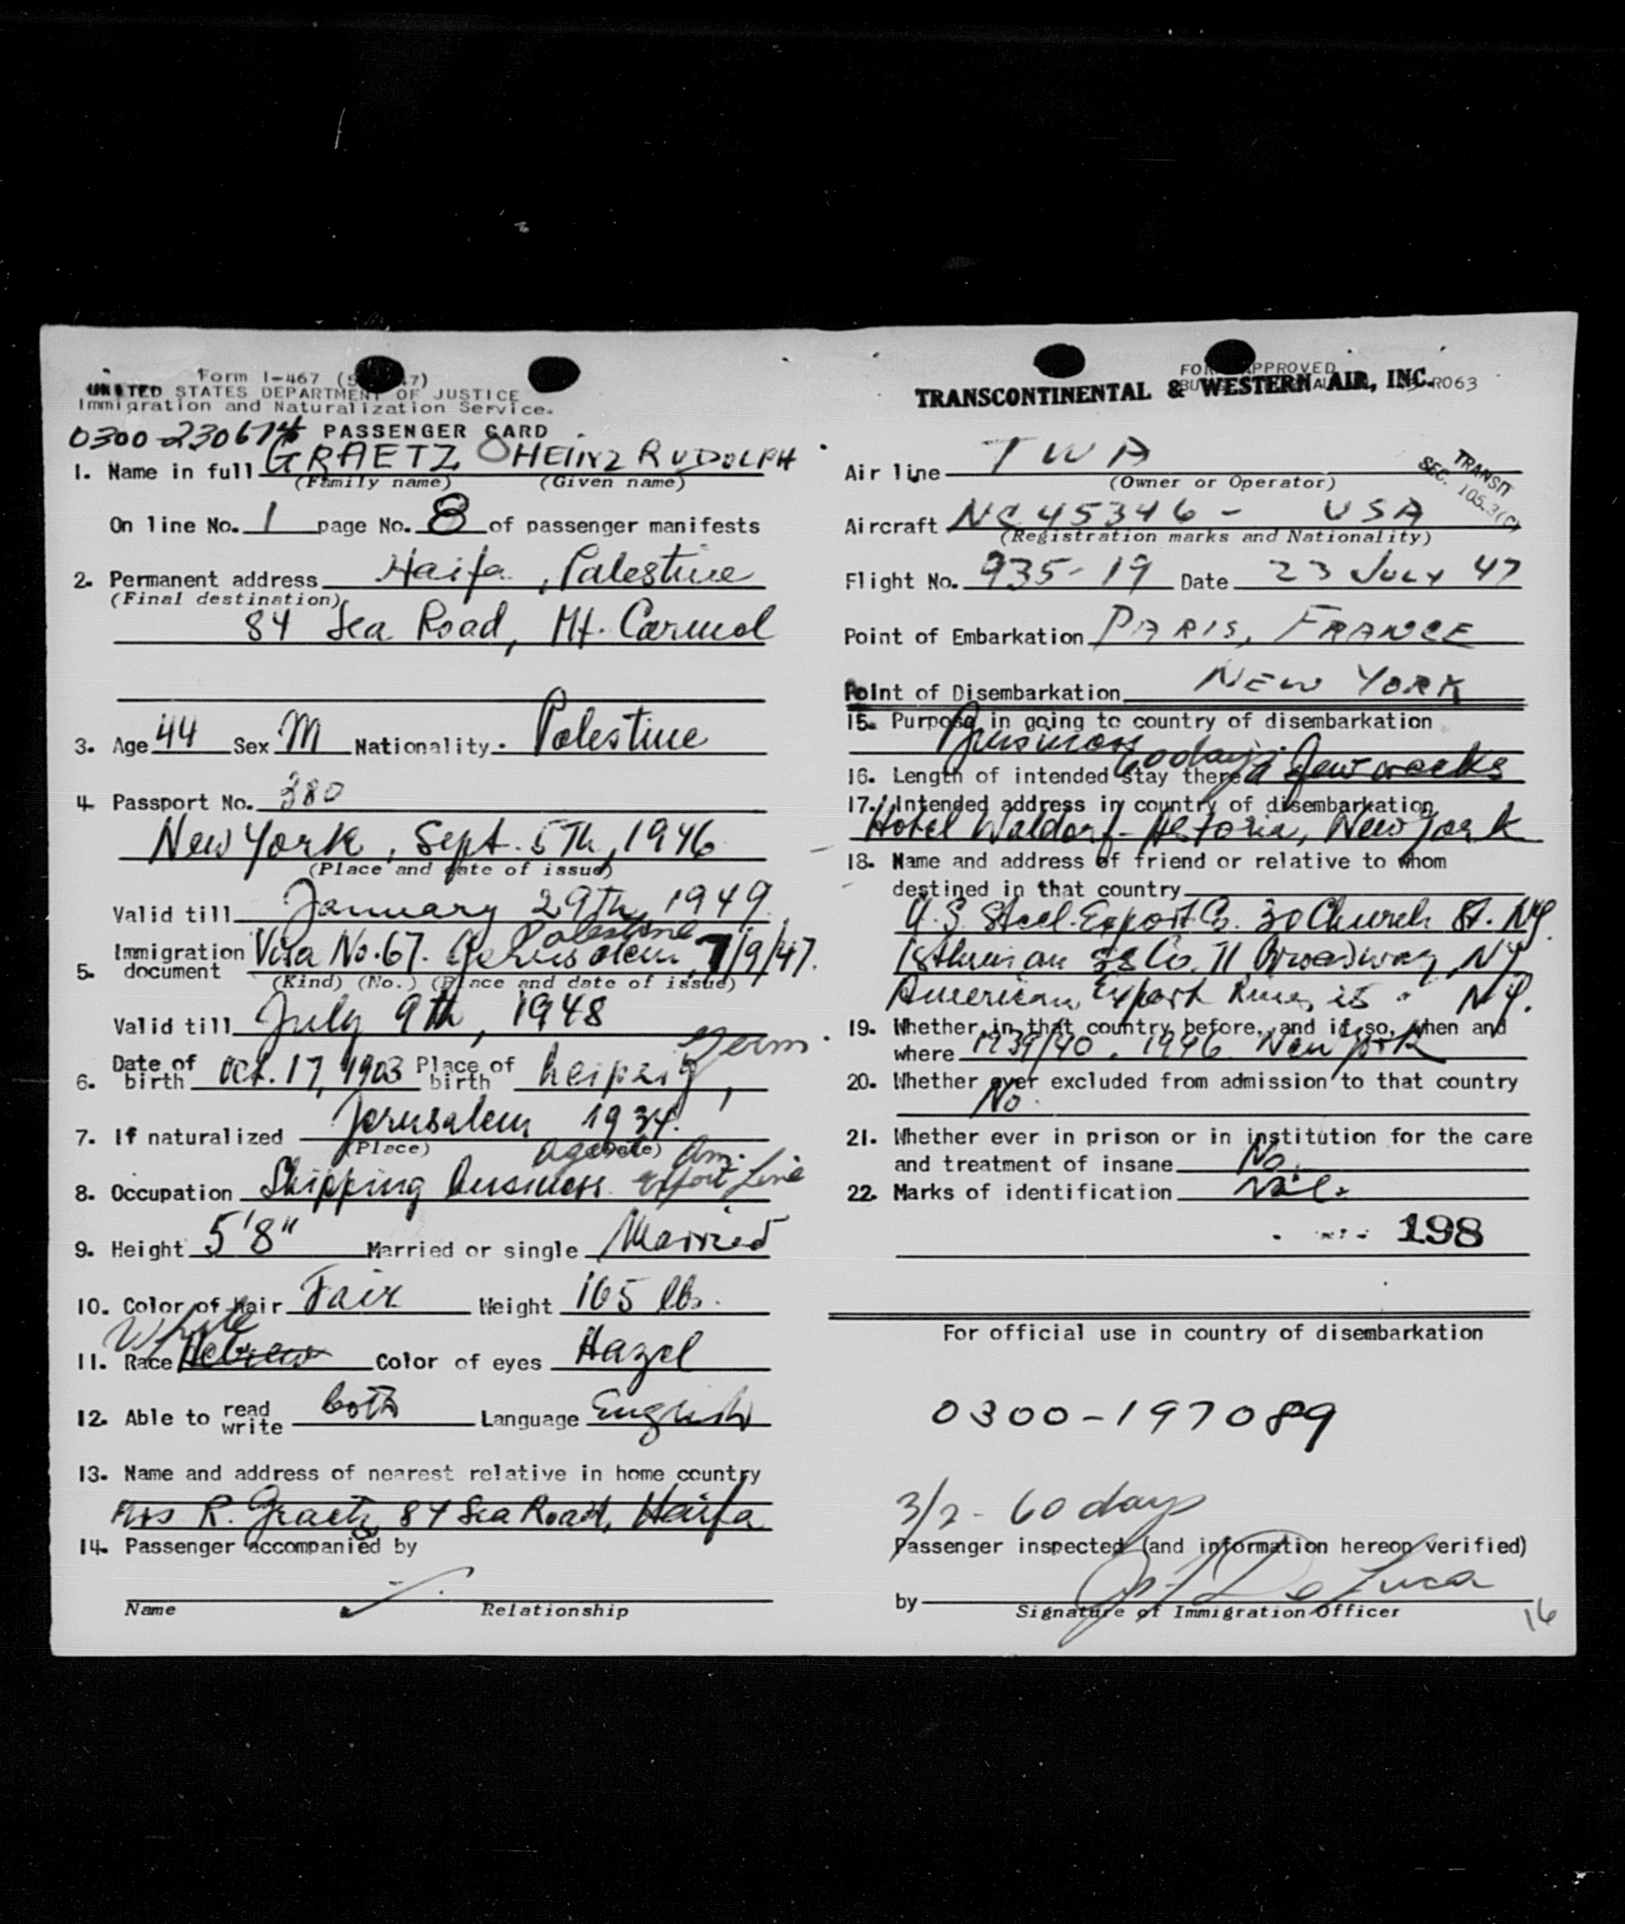 Form I-467 (5 47)
UNITED STATES DEPARTMENT OF JUSTICE
Immigration and Naturalization Service.
0300-230674 PASSENGER CARD
1. Name in full GRAETZ HEINZ RUDOLPH
(Family name) (Given name)
On line No. 1 page No. 8 of passenger manifests
2. Permanent address Haifa, Palestine
(Final destination)
84 Sea Road, Mt. Carmel
3. Age 44 Sex M Nationality. Palestine
4. Passport No. 380
New York, Sept. 5Th, 1946
(Place and date of issue)
Valid till January 29Th, 1949
Palestine
5. Immigration document Visa No. 67. Jerusalem, 7/9/47.
(Kind) (No.) (Place and date of issue)
Valid till July 9th, 1948
Germ.
6. Date of birth Oct. 17, 1903 Place of birth Leipzig,
7. If naturalized Jerusalem 1934.
(Place) (Date)
agent Am.
8. Occupation Shipping business Export Line
9. Height 5'8" Married or single Married
10. Color of hair Fair Weight 165 lbs.
White
11. Race Hebrew Color of eyes Hazel
12. Able to read write both Language English
13. Name and address of nearest relative in home country
Mrs R. Graetz, 84 Sea Road, Haifa
14. Passenger accompanied by
Name Relationship
FORM APPROVED
TRANSCONTINENTAL & WESTERN AIR, INC. R063
Air line TWA
(Owner or Operator)
TRANSIT
SEC. 105.3(C)
Aircraft NC 45346 - USA
(Registration marks and Nationality)
Flight No. 935-19 Date 23 July 47
Point of Embarkation PARIS, FRANCE
Point of Disembarkation NEW YORK
15. Purpose in going to country of disembarkation
Business
60 days.
16. Length of intended stay there a few weeks
17. Intended address in country of disembarkation
Hotel Waldorf-Astoria, New York
18. Name and address of friend or relative to whom
destined in that country
U.S. Steel Export Co. 30 Church St. NY.
Isthmian SS Co. 71 Broadway, NY
American Export Lines, 25 " NY.
19. Whether in that country before, and if so, when and
where 1939/40, 1946 New York
20. Whether ever excluded from admission to that country
No.
21. Whether ever in prison or in institution for the care
and treatment of insane No.
22. Marks of identification Nil.
198
For official use in country of disembarkation
0300-197089
3/2 - 60 days
Passenger inspected (and information hereon verified)
by De Luca
Signature of Immigration Officer
16